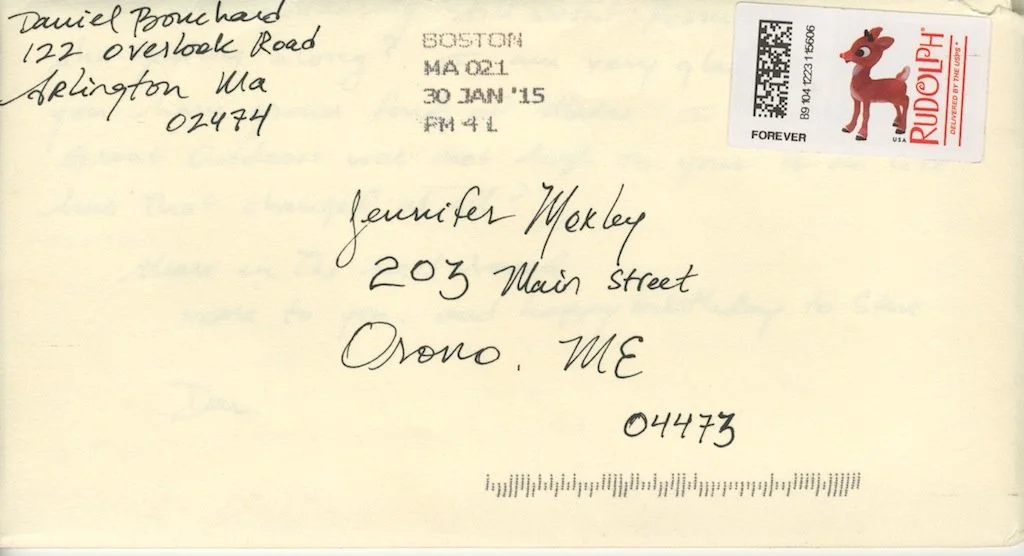 Daniel Bouchard
122 Overlook Road
Arlington Ma
02474
BOSTON
MA 021
30 JAN '15
PM 4 L
FOREVER
B9 104 1223 115606
USA
RUDOLPH®
DELIVERED BY THE USPS®
Jennifer Moxley
203 Main Street
Orono, ME
04473